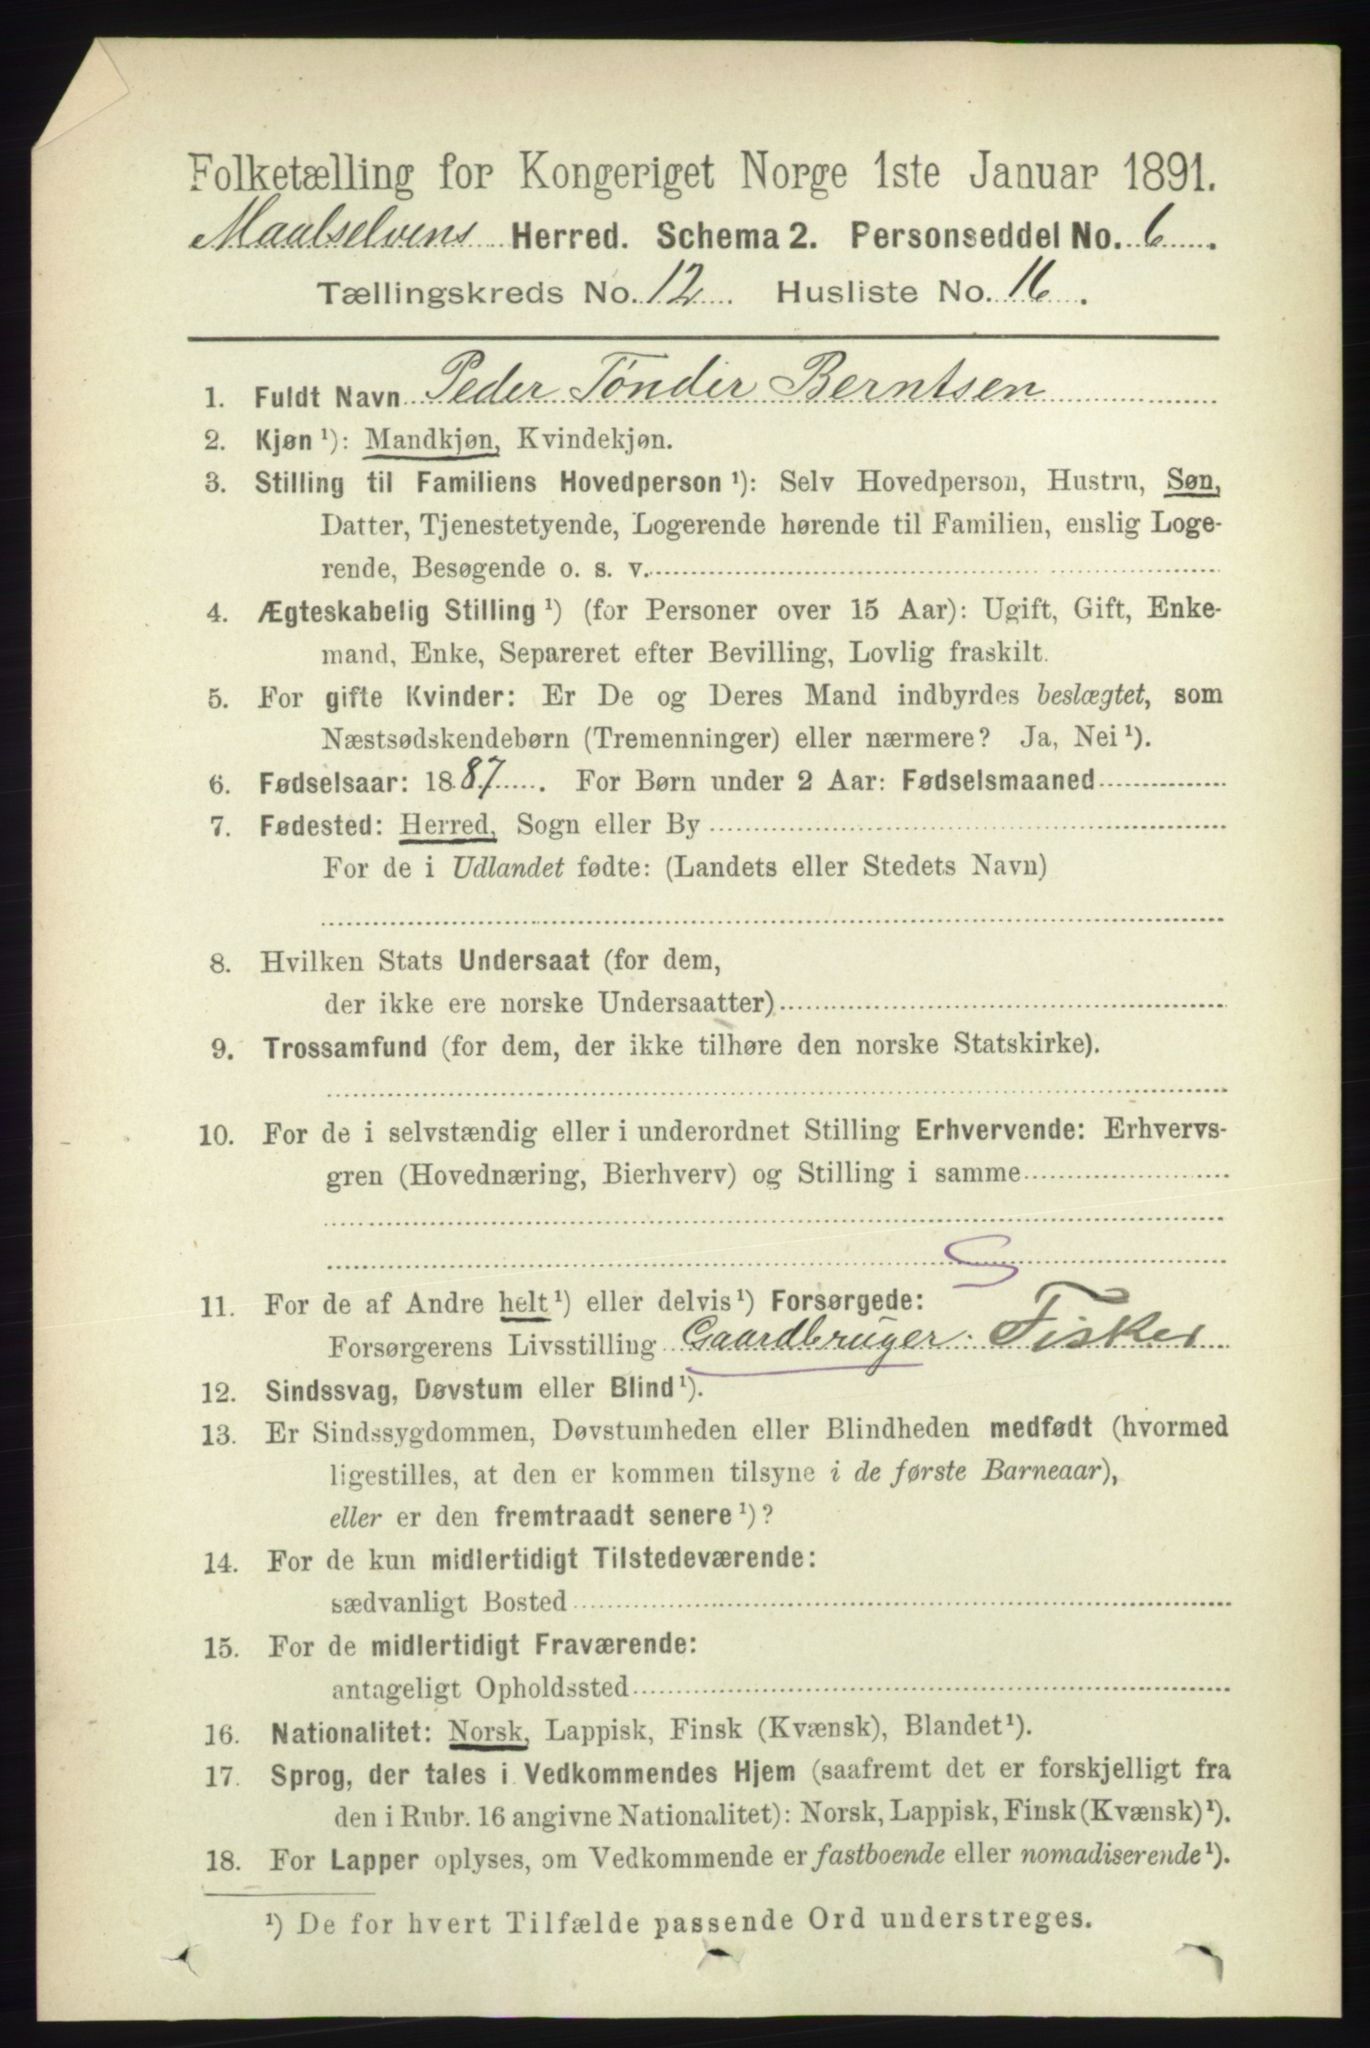 Folketælling for Kongeriget Norge 1ste Januar 1891.
Maalselvens Herred. Schema 2. Personseddel No. 6.
Tællingskreds No. 12 Husliste No. 16.
1. Fuldt Navn Peder Tønder Berntsen
2. Kjøn ¹): Mandkjøn, Kvindekjøn.
3. Stilling til Familiens Hovedperson ¹): Selv Hovedperson, Hustru, Søn,
Datter, Tjenestetyende, Logerende hørende til Familien, enslig Loge-
rende, Besøgende o. s. v.
4. Ægteskabelig Stilling ¹) (for Personer over 15 Aar): Ugift, Gift, Enke-
mand, Enke, Separeret efter Bevilling, Lovlig fraskilt.
5. For gifte Kvinder: Er De og Deres Mand indbyrdes beslægtet, som
Næstsødskendebørn (Tremenninger) eller nærmere? Ja, Nei ¹).
6. Fødselsaar: 1887. For Børn under 2 Aar: Fødselsmaaned
7. Fødested: Herred, Sogn eller By
For de i Udlandet fødte: (Landets eller Stedets Navn)
8. Hvilken Stats Undersaat (for dem,
der ikke ere norske Undersaatter)
9. Trossamfund (for dem, der ikke tilhøre den norske Statskirke).
10. For de i selvstændig eller i underordnet Stilling Erhvervende: Erhvervs-
gren (Hovednæring, Bierhverv) og Stilling i samme
S
11. For de af Andre helt ¹) eller delvis ¹) Forsørgede:
Forsørgerens Livsstilling Gaardbruger. Fisker
12. Sindssvag, Døvstum eller Blind ¹).
13. Er Sindssygdommen, Døvstumheden eller Blindheden medfødt (hvormed
ligestilles, at den er kommen tilsyne i de første Barneaar),
eller er den fremtraadt senere ¹)?
14. For de kun midlertidigt Tilstedeværende:
sædvanligt Bosted
15. For de midlertidigt Fraværende:
antageligt Opholdssted
16. Nationalitet: Norsk, Lappisk, Finsk (Kvænsk), Blandet ¹).
17. Sprog, der tales i Vedkommendes Hjem (saafremt det er forskjelligt fra
den i Rubr. 16 angivne Nationalitet): Norsk, Lappisk, Finsk (Kvænsk) ¹).
18. For Lapper oplyses, om Vedkommende er fastboende eller nomadiserende ¹).
¹) De for hvert Tilfælde passende Ord understreges.